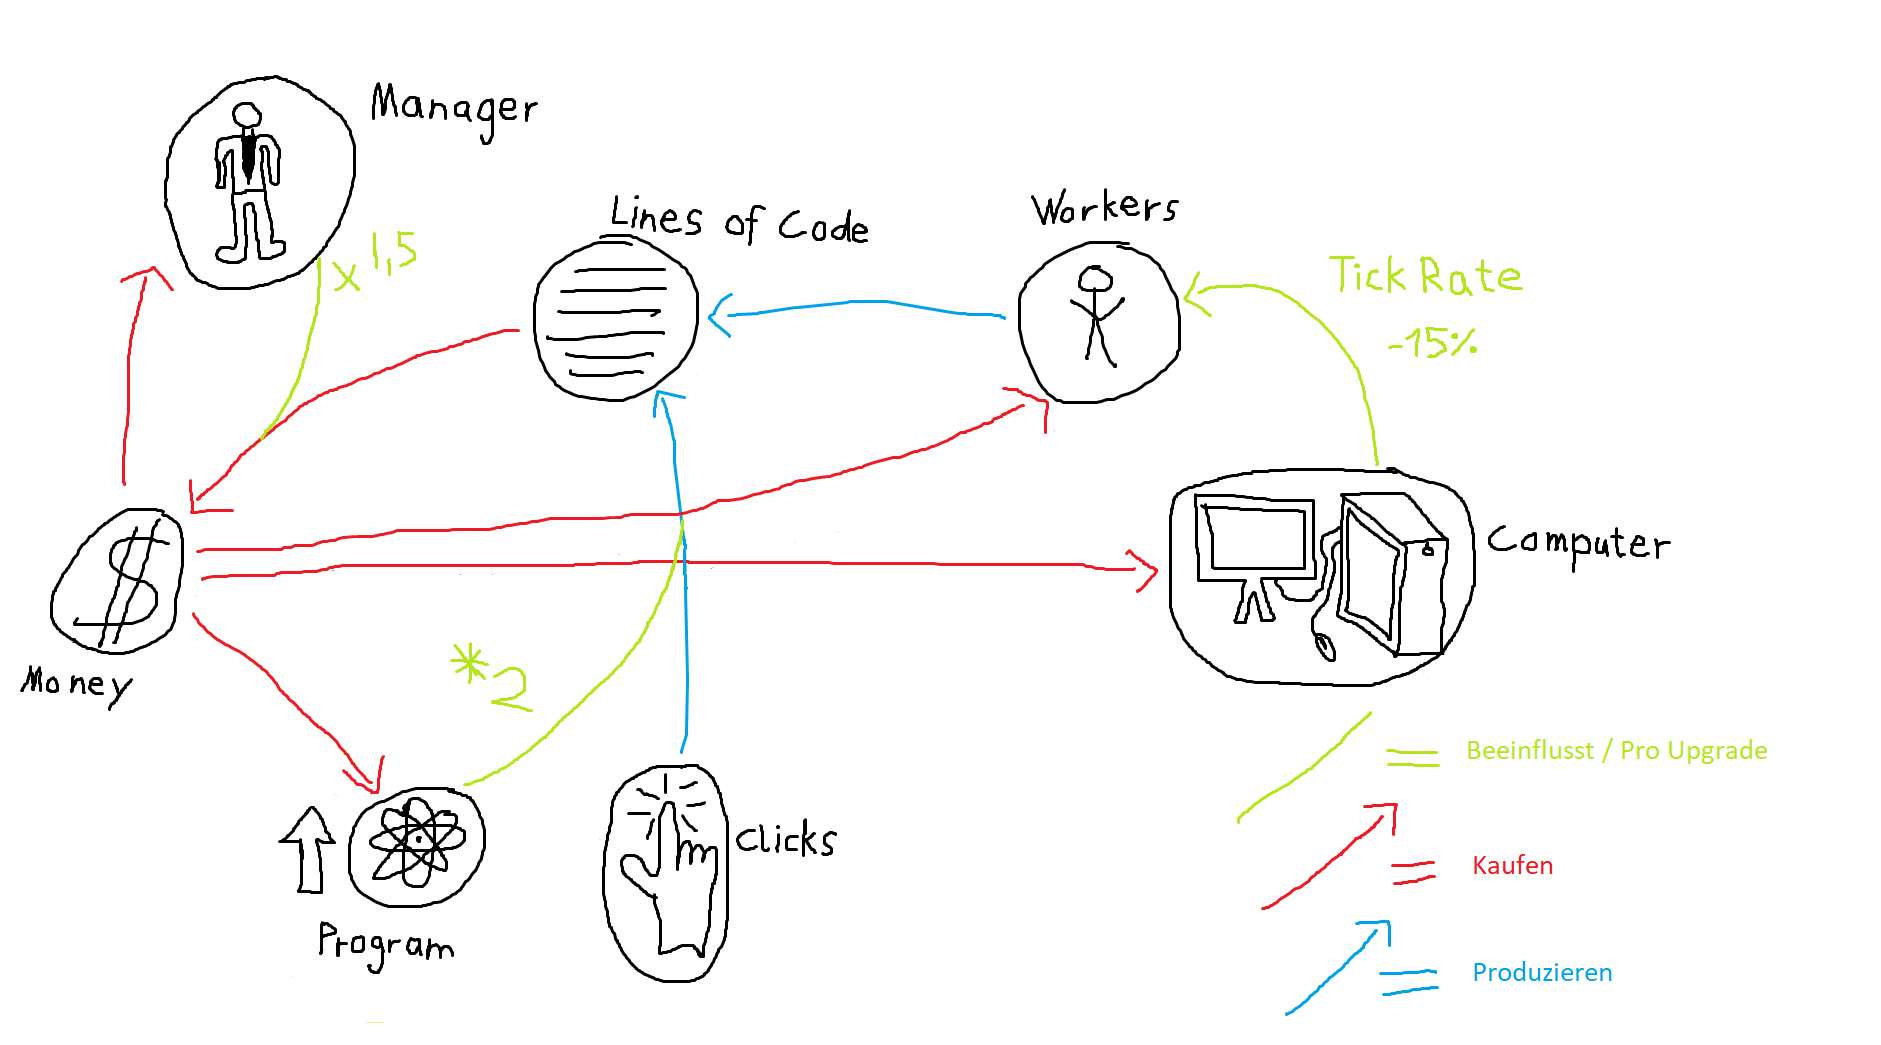 Manager
x 1,5
Lines of Code
Workers
Tick Rate
-15%
$
Money
Computer
*2
Program
Clicks
= Beeinflusst / Pro Upgrade
= Kaufen
= Produzieren